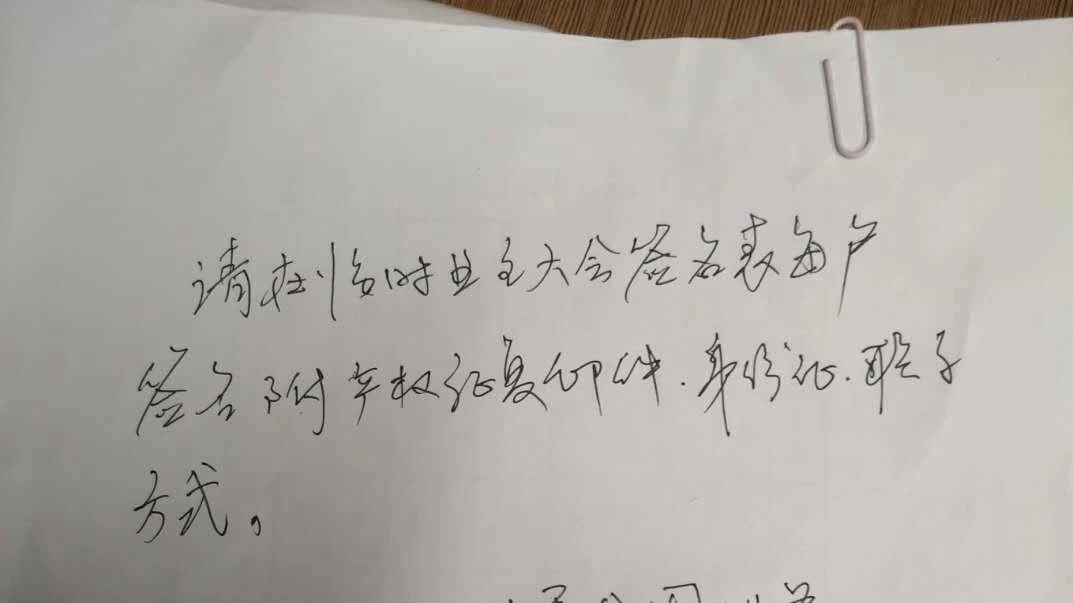 请在临时业主大会签名表每户
签名附产权证复印件.身份证.联系
方式。